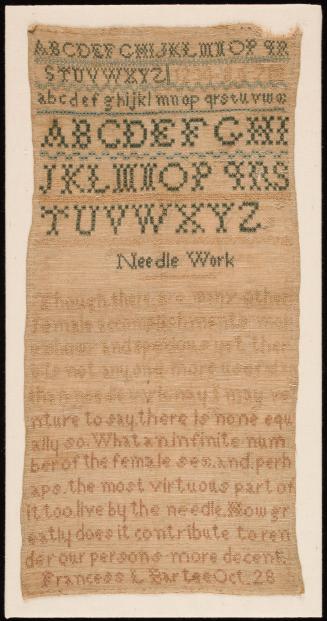 ABCDEFGHIJKLMNOP QR
STUVWXYZ
abcdefghijklmnopqrstuvw
ABCDEFGHI
JKLMNOP QRS
TUVWXYZ
Needle Work
Though there are many other
female accomplishments mor
and specious yet ther
e is not any one more
than needle I may ve
nture to say, there is none equ
ally so. What an infinite num
ber of the female sex, and, perh
aps, the most virtuous part of
it, too, live by the needle. How gr
eatly does it contribute to ren
der our persons more decent.
Francess L Oct. 28